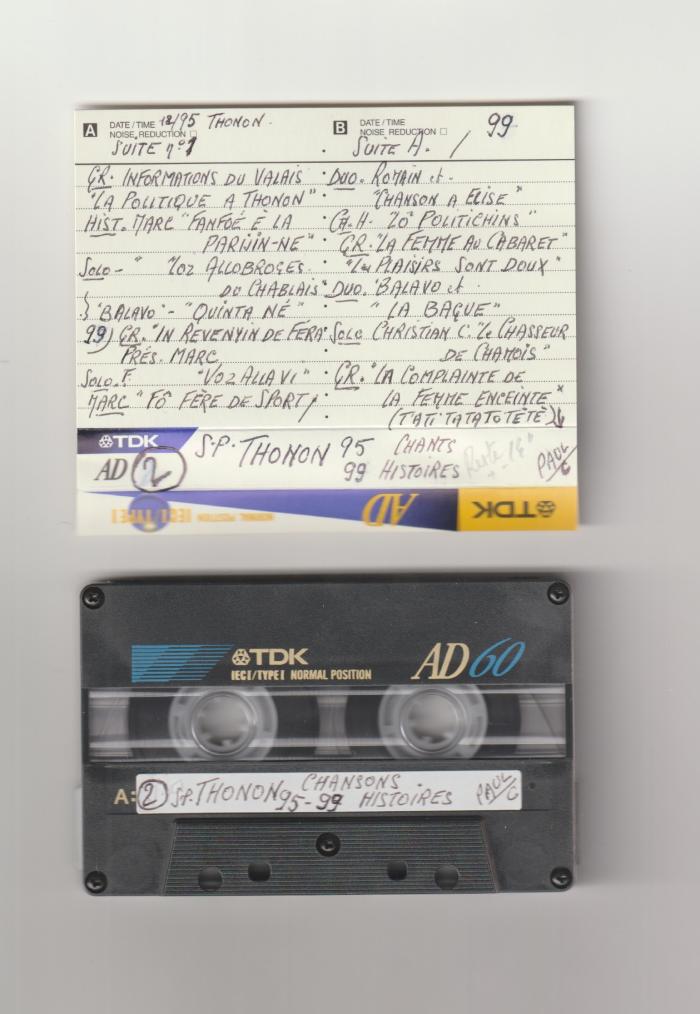 A DATE/TIME 12/95 THONON.
NOISE REDUCTION □
SUITE nº1
GR. INFORMATIONS DU VALAIS
"LA POLITIQUE A THONON"
HIST. MARC "FANFOÉ E LA
PARIJIN-NE"
SOLO - " "LOZ ALLOBROGES
DU CHABLAIS
"BALAVO" - "QUINTA NÉ"
99) GR. "IN REVENYIN DE FÉRA"
PRÉS. MARC
SOLO. F. "VOZ ALLA VI"
MARC "FÔ FÈRE DE SPORT"
B DATE/TIME 99
NOISE REDUCTION □
SUITE A. /
DUO. ROMAIN et.
"CHANSON A ELISE"
CH.H. "LÔ POLITICHINS"
GR. "LA FEMME AU CABARET"
"Les PLAISIRS SONT DOUX"
DUO. BALAVO et.
"LA BAGUE"
SOLO CHRISTIAN C. "Le CHASSEUR
DE CHAMOIS"
GR. "LA COMPLAINTE DE
LA FEMME ENCEINTE"
(TATI TATATOTÈTÈ)
TDK
AD 2
S.P. THONON 95 CHANTS
99 HISTOIRES
Reste
PAUL/C
TDK
AD
NORMAL POSITION IECI/TYPE I
TDK
IECI/TYPE I NORMAL POSITION
AD 60
A:
2 S.P. THONON CHANSONS.
95-99 HISTOIRES
PAUL/C